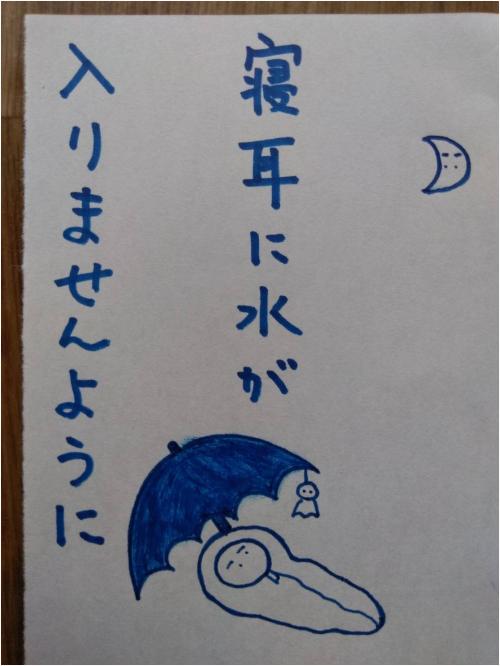 寝耳に水が
入りませんように